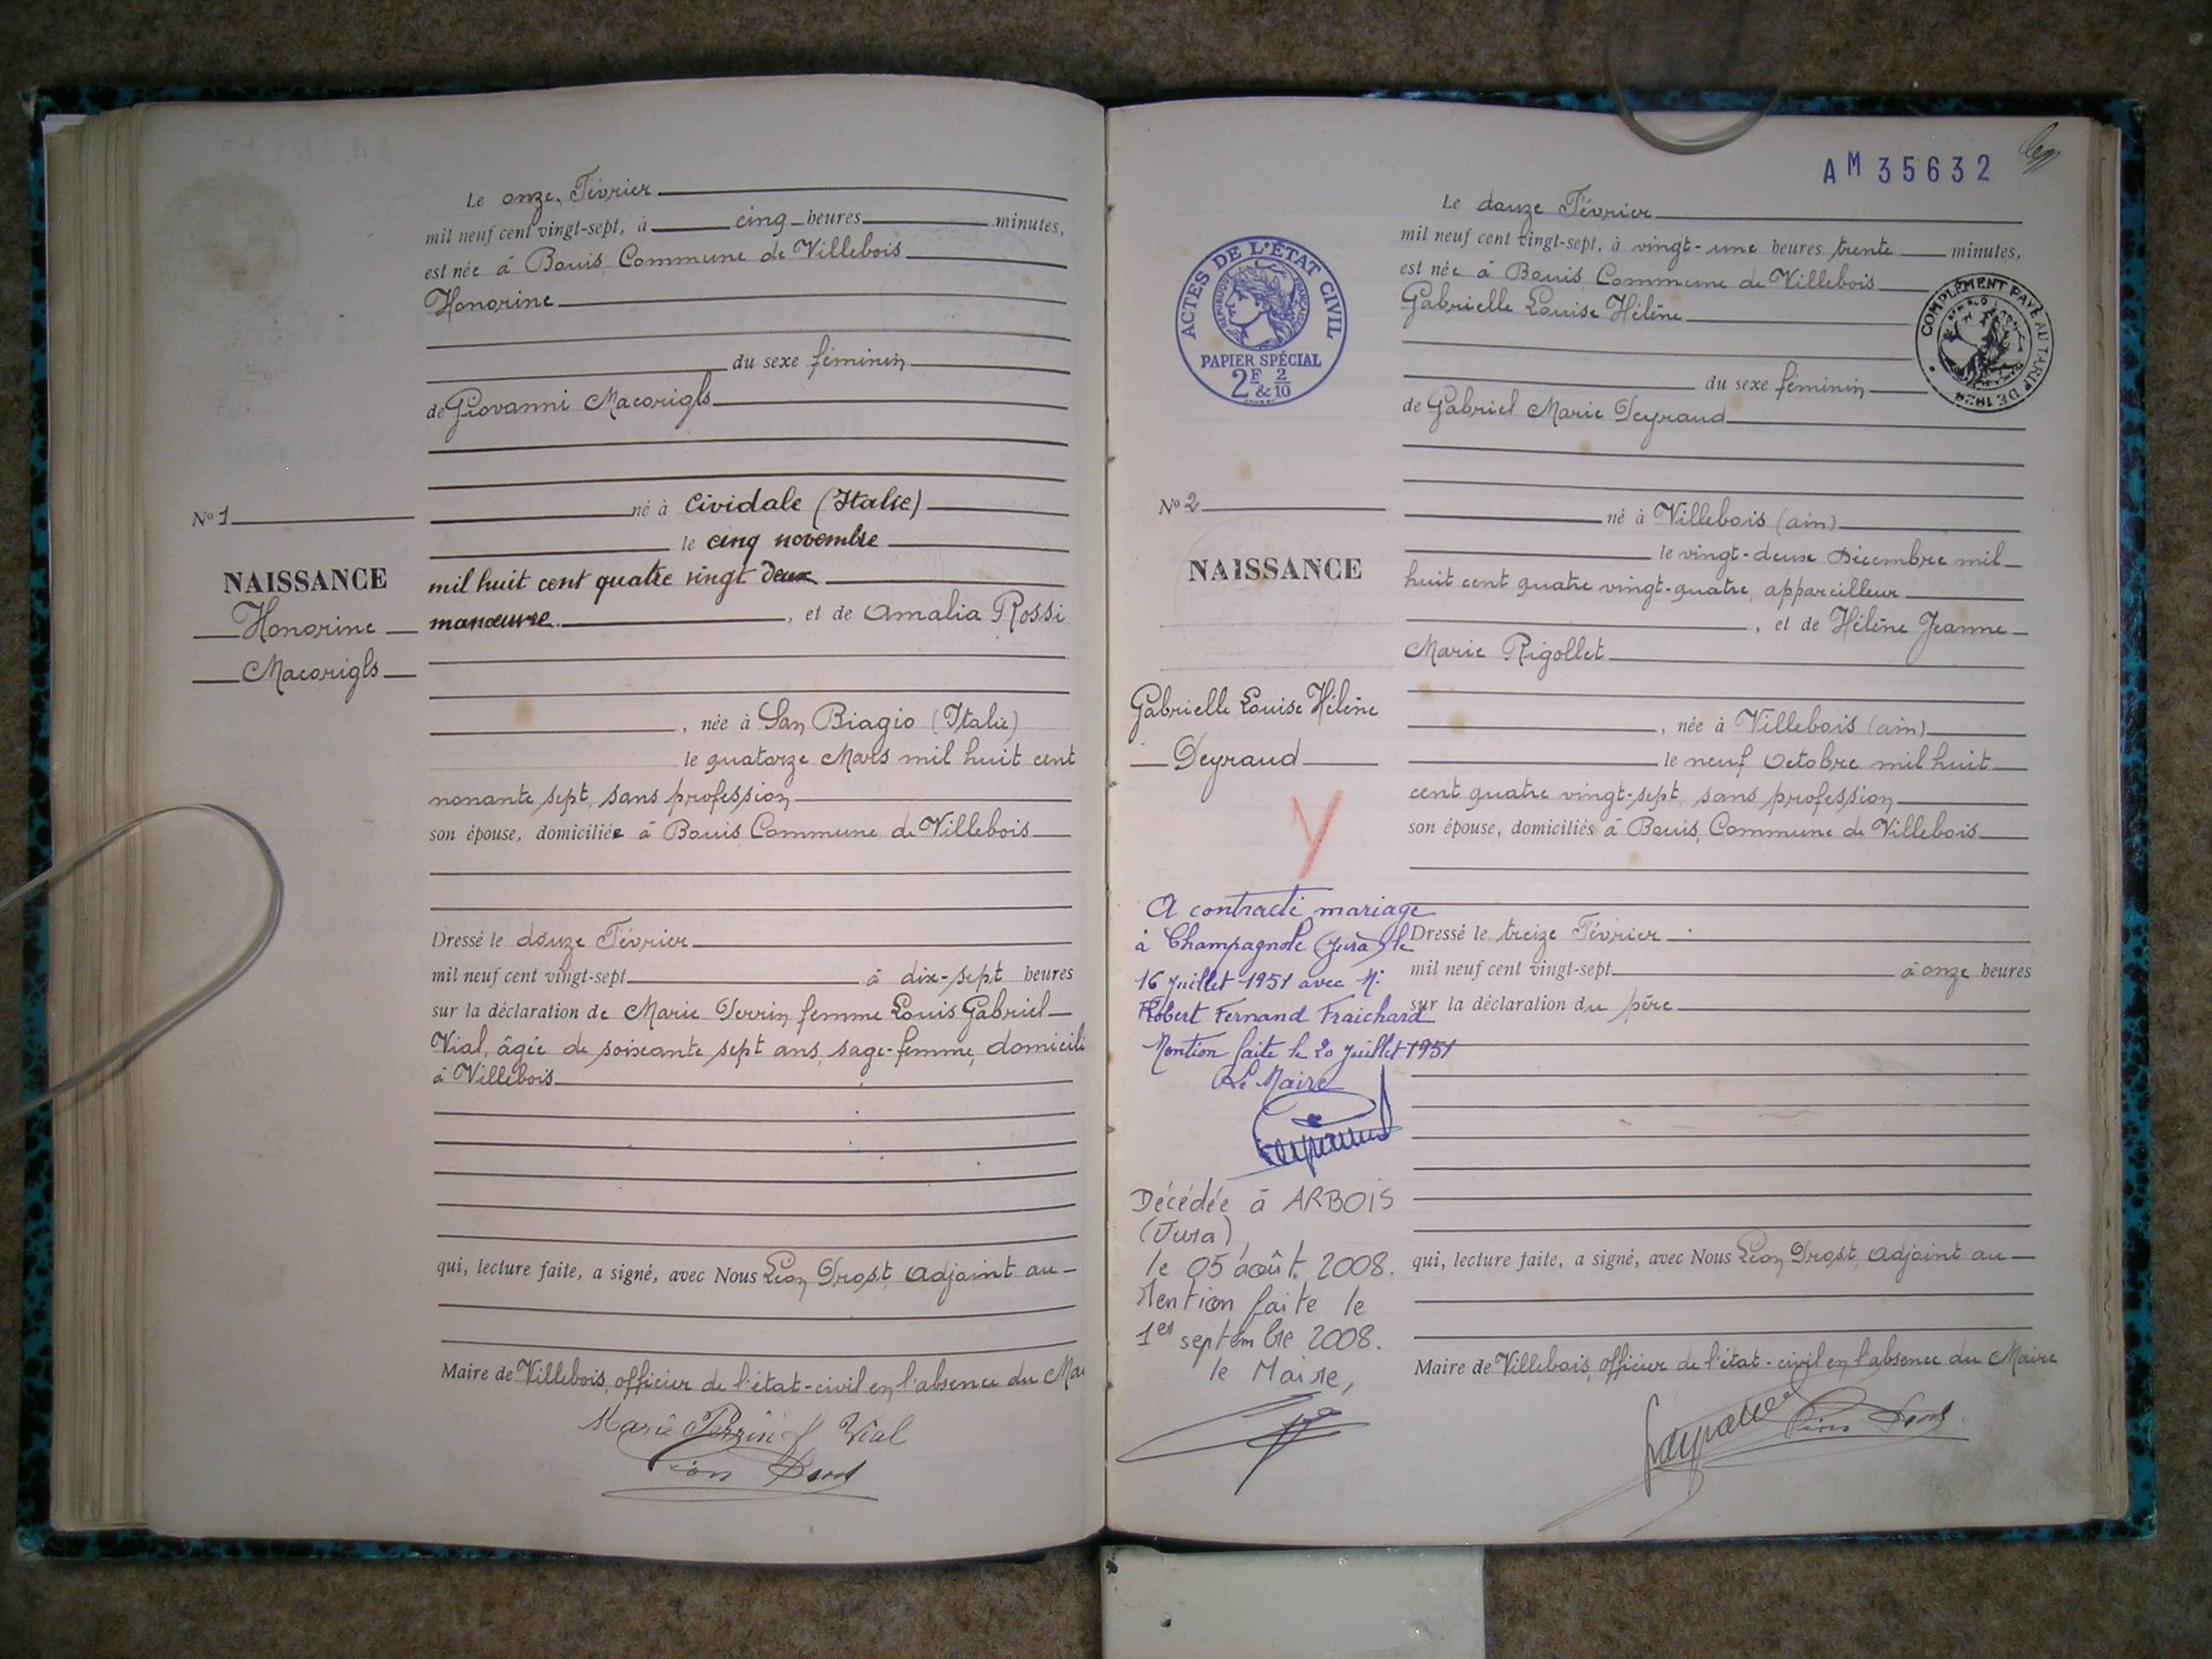 Le onze Février
mil neuf cent vingt-sept, à cinq heures minutes,
est née à Bouis Commune de Villebois
Honorine
du sexe féminin
de Giovanni Macorigls
né à Cividale (Italie)
le cinq novembre
mil huit cent quatre vingt deux
manœuvre, et de Amalia Rossi
, née à San Biagio (Italie)
le quatorze Mars mil huit cent
nonante sept, sans profession
son épouse, domiciliée à Bouis Commune de Villebois
Dressé le douze Février
mil neuf cent vingt-sept à dix-sept heures
sur la déclaration de Marie Perrin femme Louis Gabriel
Vial, âgée de soixante sept ans, sage-femme, domicili
à Villebois
qui, lecture faite, a signé, avec Nous Léon Drost, Adjoint au
Maire de Villebois, officier de l'état-civil en l'absence du Mai
Marie Perrin f Vial
Léon Drost
N° 1
NAISSANCE
Honorine
Macorigls
AM 35632
ACTES DE L'ÉTAT CIVIL
RÉPUBLIQUE FRANÇAISE
PAPIER SPÉCIAL
2F & 2/10
COMPLÉMENT PAYÉ AU TARIF DE
N° 2
NAISSANCE
Gabrielle Louise Hélène
Peyraud
A contracté mariage
à Champagnole (Jura) le
16 Juillet 1951 avec M.
Robert Fernand Fraichard
Mention faite le 20 Juillet 1951
Le Maire
Décédée à ARBOIS
(Jura),
le 05 août 2008.
Mention faite le
1er septembre 2008.
le Maire,
Le douze Février
mil neuf cent vingt-sept, à vingt-une heures trente minutes,
est née à Bouis Commune de Villebois
Gabrielle Louise Hélène
du sexe féminin
de Gabriel Marie Peyraud
né à Villebois (ain)
le vingt-deux Décembre mil
huit cent quatre vingt-quatre, appareilleur
, et de Hélène Jeanne
Marie Rigollet
, née à Villebois (ain)
le neuf Octobre mil huit
cent quatre vingt-sept, sans profession
son épouse, domiciliés à Bouis, Commune de Villebois
Dressé le treize Février
mil neuf cent vingt-sept à onze heures
sur la déclaration du père
qui, lecture faite, a signé, avec Nous Léon Drost, Adjoint au
Maire de Villebois, officier de l'état-civil en l'absence du Maire
Léon Drost